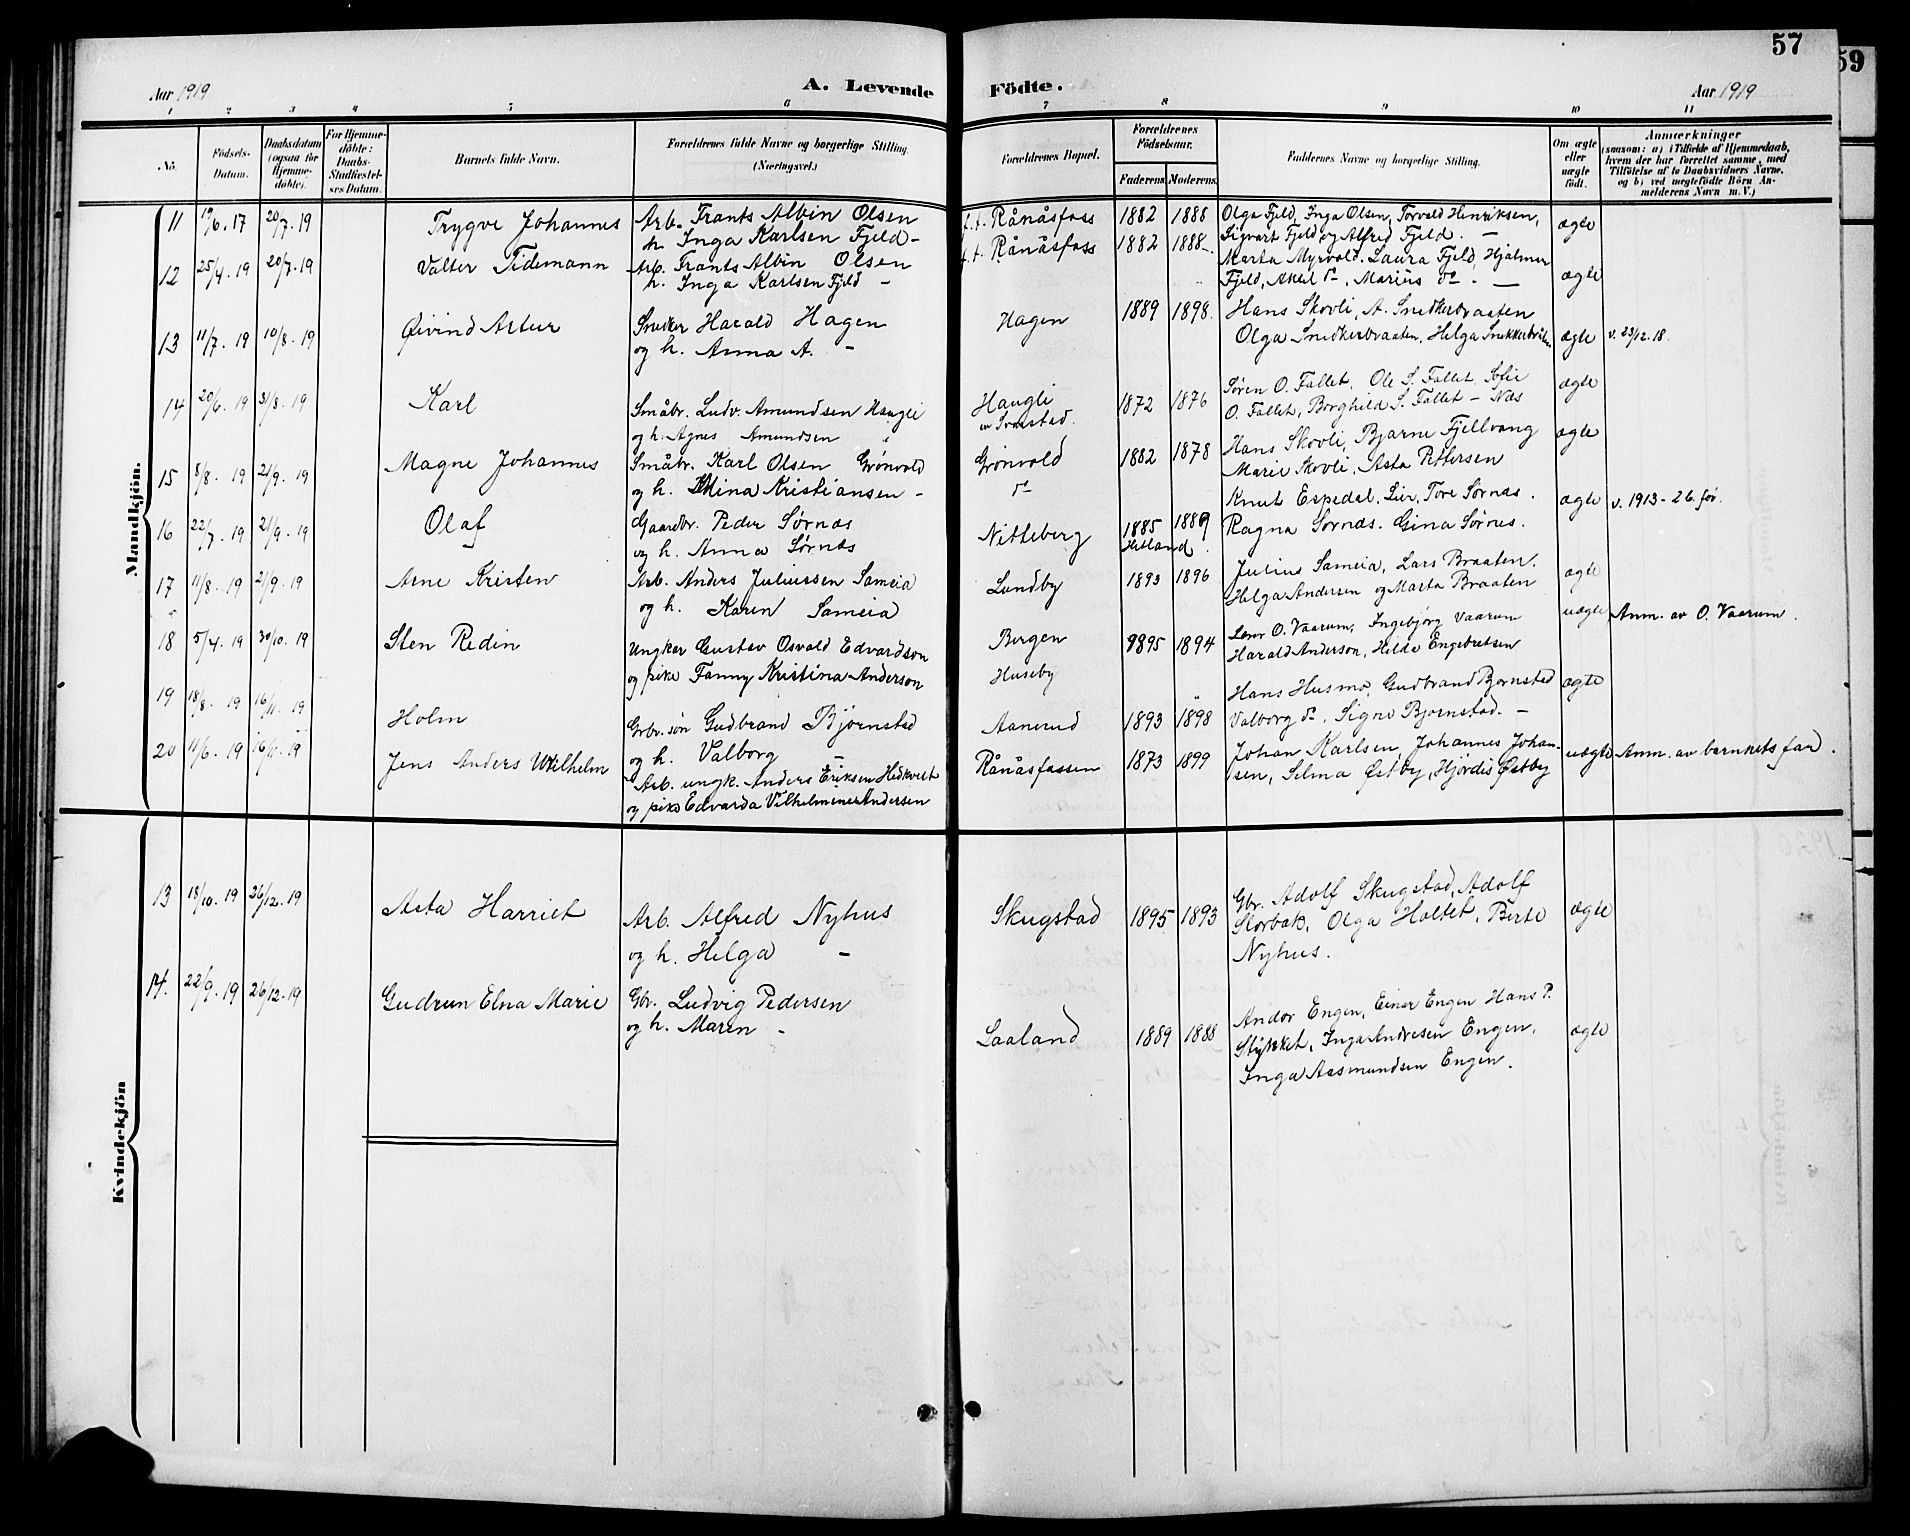 57
59
Aar 1919
A. Levende Födte.
Aar 1919
1 2 3 4 5 6 7 8 9 10 11
No.
Födsels-Datum.
Daabsdatum (ogsaa for Hjemme-döbte).
For Hjemme-döbte: Daabs-Stadfæstel-ses Datum.
Barnets fulde Navn.
Forældrenes fulde Navne og borgerlige Stilling. (Næringsvei.)
Forældrenes Bopæl.
Forældrenes Födselsaar.
Faderens. Moderens.
Faddernes Navne og borgerlige Stilling.
Om ægte eller uægte födt.
Anmærkninger
(saasom: a) i Tilfælde af Hjemmedaab, hvem der har forrettet samme, med Tilföielse af to Daabsvidners Navne, og b) ved uægtefödte Börn An-melderens Navn m. V.)
Mandkjön.
11 19/6. 17 20/7. 19 Trygve Johannes Arb. Frants Albin Olsen
h. Inga Karlsen Fjeld -
f.t. Rånåsfoss 1882 1888 Olga Fjeld, Inga Olsen, Torvald Henriksen,
Sigvart Fjeld og Alfred Fjeld. - ægte
12 25/4. 19 20/7. 19 Valter Tidemann Arb. Frants Albin Olsen
h. Inga Karlsen Fjeld -
f.t. Rånåsfoss 1882 1888 Marta Myrvold. Laura Fjeld, Hjalmar
Fjeld, Aksel do, Marius do. - ægte
13 11/7. 19 10/8. 19 Øivind Artur Snekker Harald Hagen
og h. Anna A. -
Hagen 1889 1898. Hans Skovli, A. Snedkerbraaten
Olga Snedkerbraaten, Helga ægte v. 23/12. 18.
14 20/6. 19 31/8. 19 Karl Småbr. Ludv. Amundsen Haugli
og h. Agnes Amundsen
Haugli
1872 1876 Søren O. Fallet, Ole S. Fallet, Sofie
O. Fallet, Borghild S. Fallet - Næs ægte
15 5/8. 19 21/9. 19 Magne Johannes Småbr. Karl Olsen Grønvold
og h. Mina Kristiansen -
Grønvold 1882 1878 Hans Skovli, Bjarne Fjellvang
Marie Skovli, Asta Pettersen ægte
16 22/7. 19 21/9. 19 Olaf Gaardbr. Peder Sørnæs
og h. Anna Sørnæs
Nitteberg 1885 1889
Hetland.
Knut Espedal, Lier, Tore Sørnæs.
Ragna Sørnæs. Gina Sørnes. ægte v. 1913 - 26. før.
17 11/8. 19 21/9. 19 Arne Kristen Arb. Anders Juliussen Sameia
og h. Karen Sameia
Lundby 1893 1896 Julius Sameia, Lars Braaten.
Helga Andersen og Marta Braaten ægte
18 5/4. 19 30/10. 19 Sten Redin Ungkar Gustav Osvald Edvardson
og pike Fanny Kristina Anderson
Bergen
Huseby
1895 1894 O. Vaarum, Ingebjørg Vaarum
Harald Anderson, Hilda Engebretsen uægte Anm. av O. Vaarum.
19 18/8. 19 16/11. 19 Holm Grbr. søn Gudbrand Bjørnstad
og h. Valborg -
Aanerud 1893 1898 Hans Husmo, Gudbrand Bjørnstad
Valborg do, Signe Bjørnstad. - ægte
20 11/6. 19 16/11. 19 Jens Anders Wilhelm Arb. ungk. Anders Eriksen Hedkvist
og pike Edvarda Vilhelmine Andersen
Rånåsfossen 1873 1899 Johan Karlsen, Johannes Johan-
sen, Selma Østby, Hjørdis Østby uægte Anm. av barnets far.
Kvindekjön
13 18/10. 19 26/12. 19 Asta Harriet Arb. Alfred Nyhus
og h. Helga -
Skugstad 1895 1893 Gbr. Adolf Skugstad, Adolf
Storbak, Olga Holtet, Berte
Nyhus. ægte
14. 22/9. 19 26/12. 19 Gudrun Elna Marie Gbr. Ludvig Pedersen
og h. Maren -
Laaland 1889 1888 Andor Engen, Einar Engen Hans P.
Stykket, Inga Andresen Engen.
Inga Aasmundsen Engen. ægte